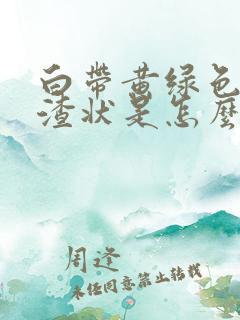 白带黄绿色
渣状是怎麽
周逢
未经同意禁止转载